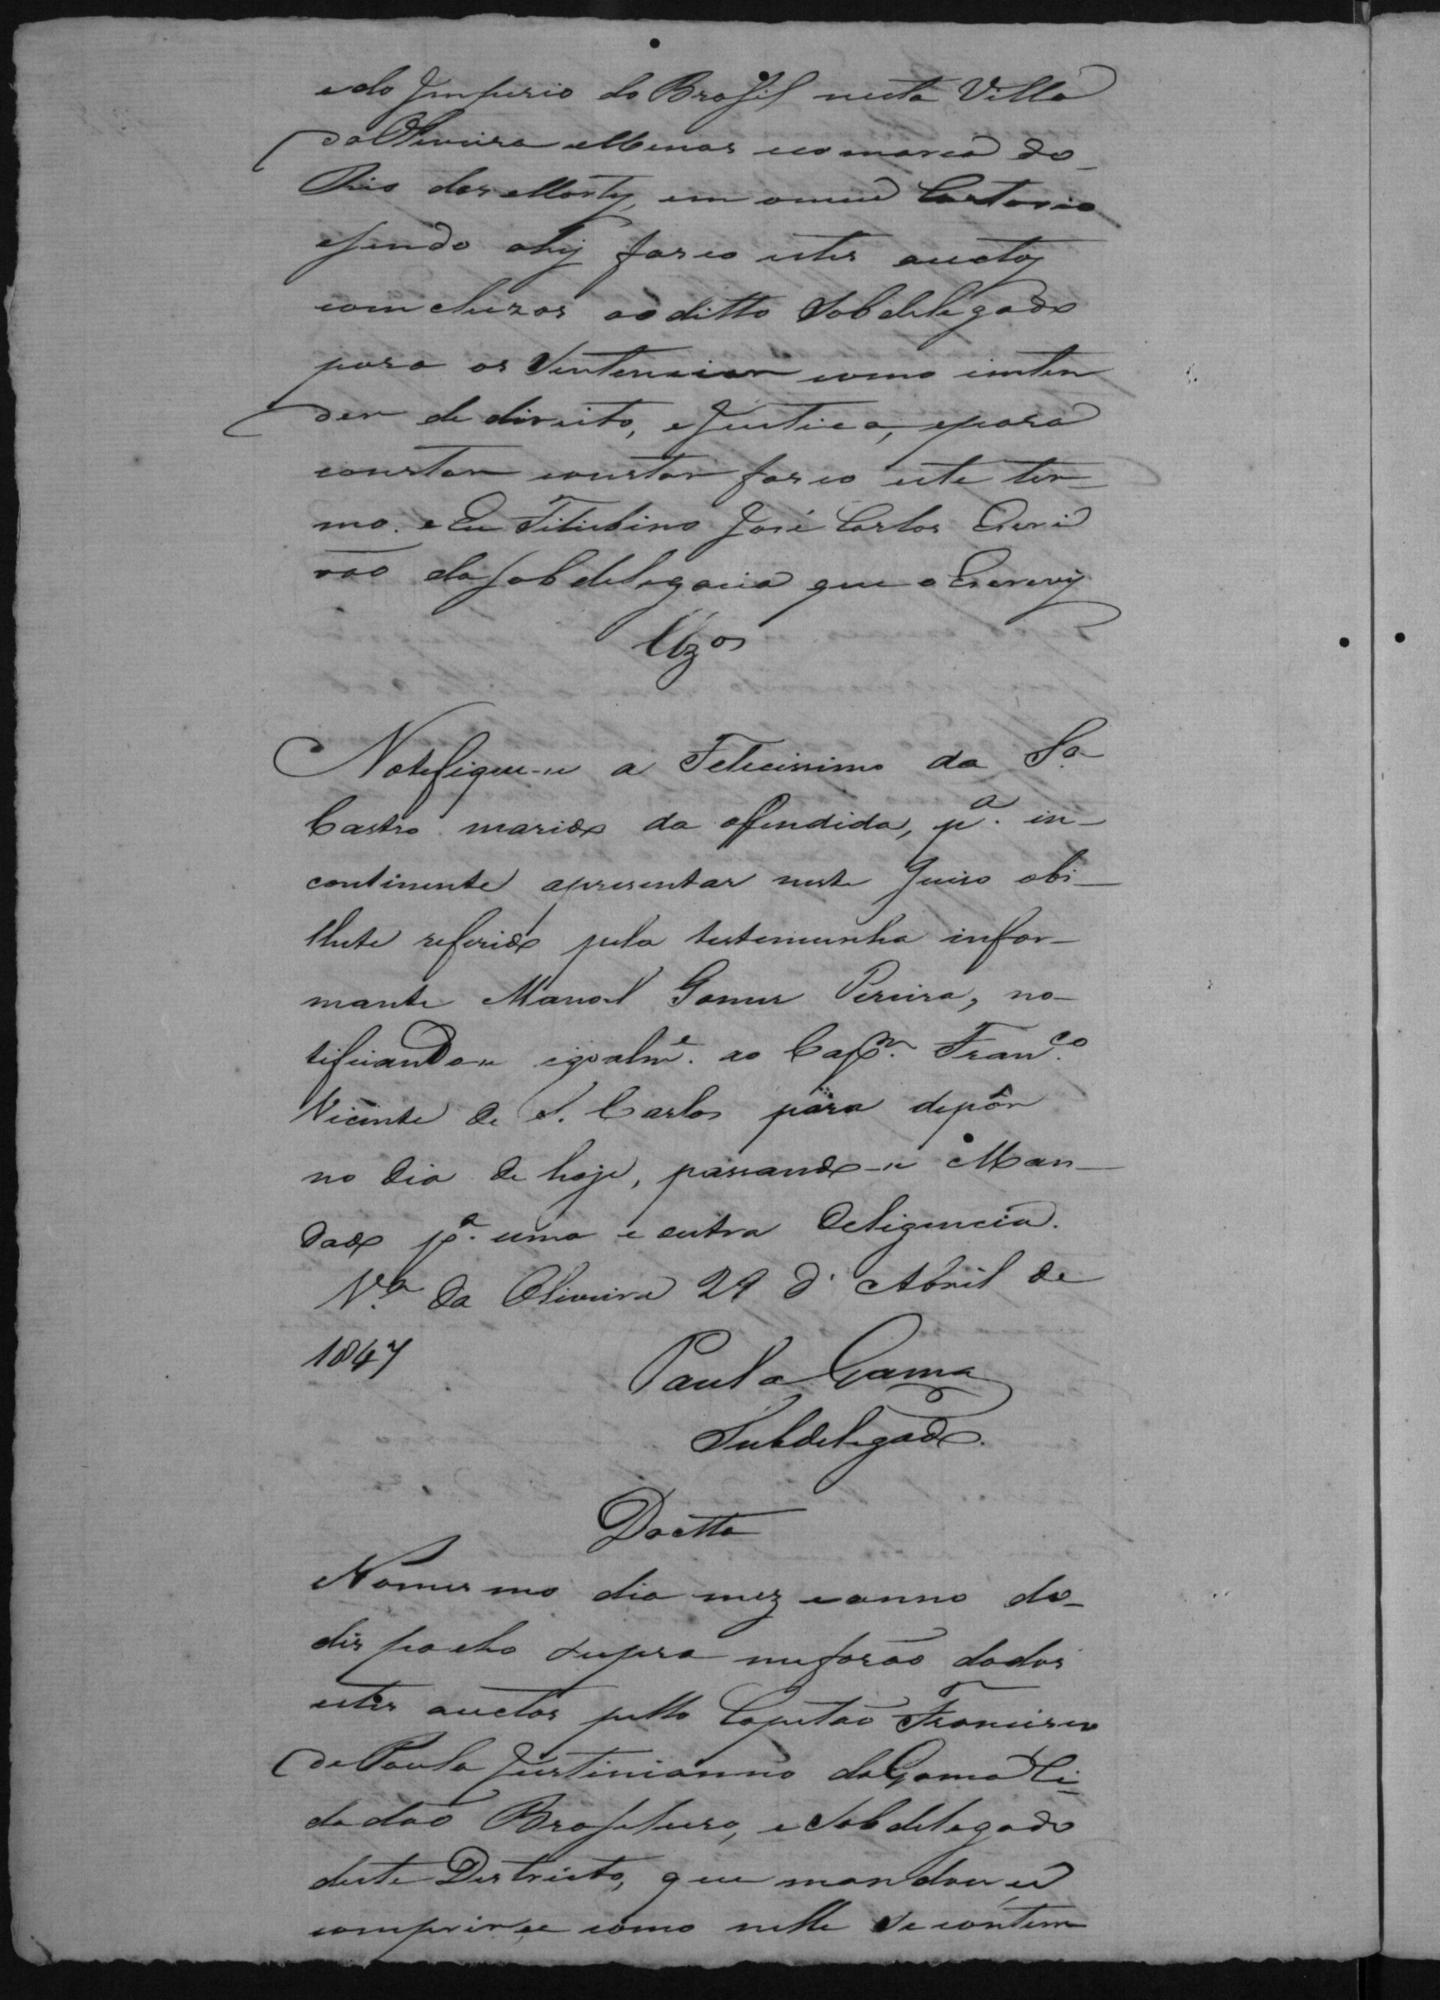 e do Imperio do Brasil nesta Villa
da Oliveira Menas e comarca do
Rio das Mortes, em o meu Cartorio
e sendo ahy farco estes auctos
comcluzos ao ditto Sobdelegado
para os Sentenciar como imten
der de direito, e Justica, e para
constar constar farco este ter
mo. e Eu Titubino José Carlos Escri
vão da sobdelegacia que o Escrevy
Clzos
Notefique-se a Felicissimo da Sa
Castro marido da offendida, pa. in-
continente apresentar neste Juiso obi-
lhete referido pela testemunha infor-
mante Manoel Gomes Pereira, no-
tificando-se igoalme. ao Capm. Franco.
Vicente de S. Carlos para depôr
no dia de hoje, passando-se Man-
dado pa. uma e outra deligencia.
Va. da Oliveira 29 d' Abril de
1847
Paula Gama
Subdelegado.
Dactta
No mesmo dia mez e anno do
dispacho supra me forão dados
estes auctos pello Capitão Francisco
de Paula Justinianno da Gama Ci-
dadão Brasileiro, e Sobdelegado
deste Destricto, que mandou se
comprirse como nelle Se contem